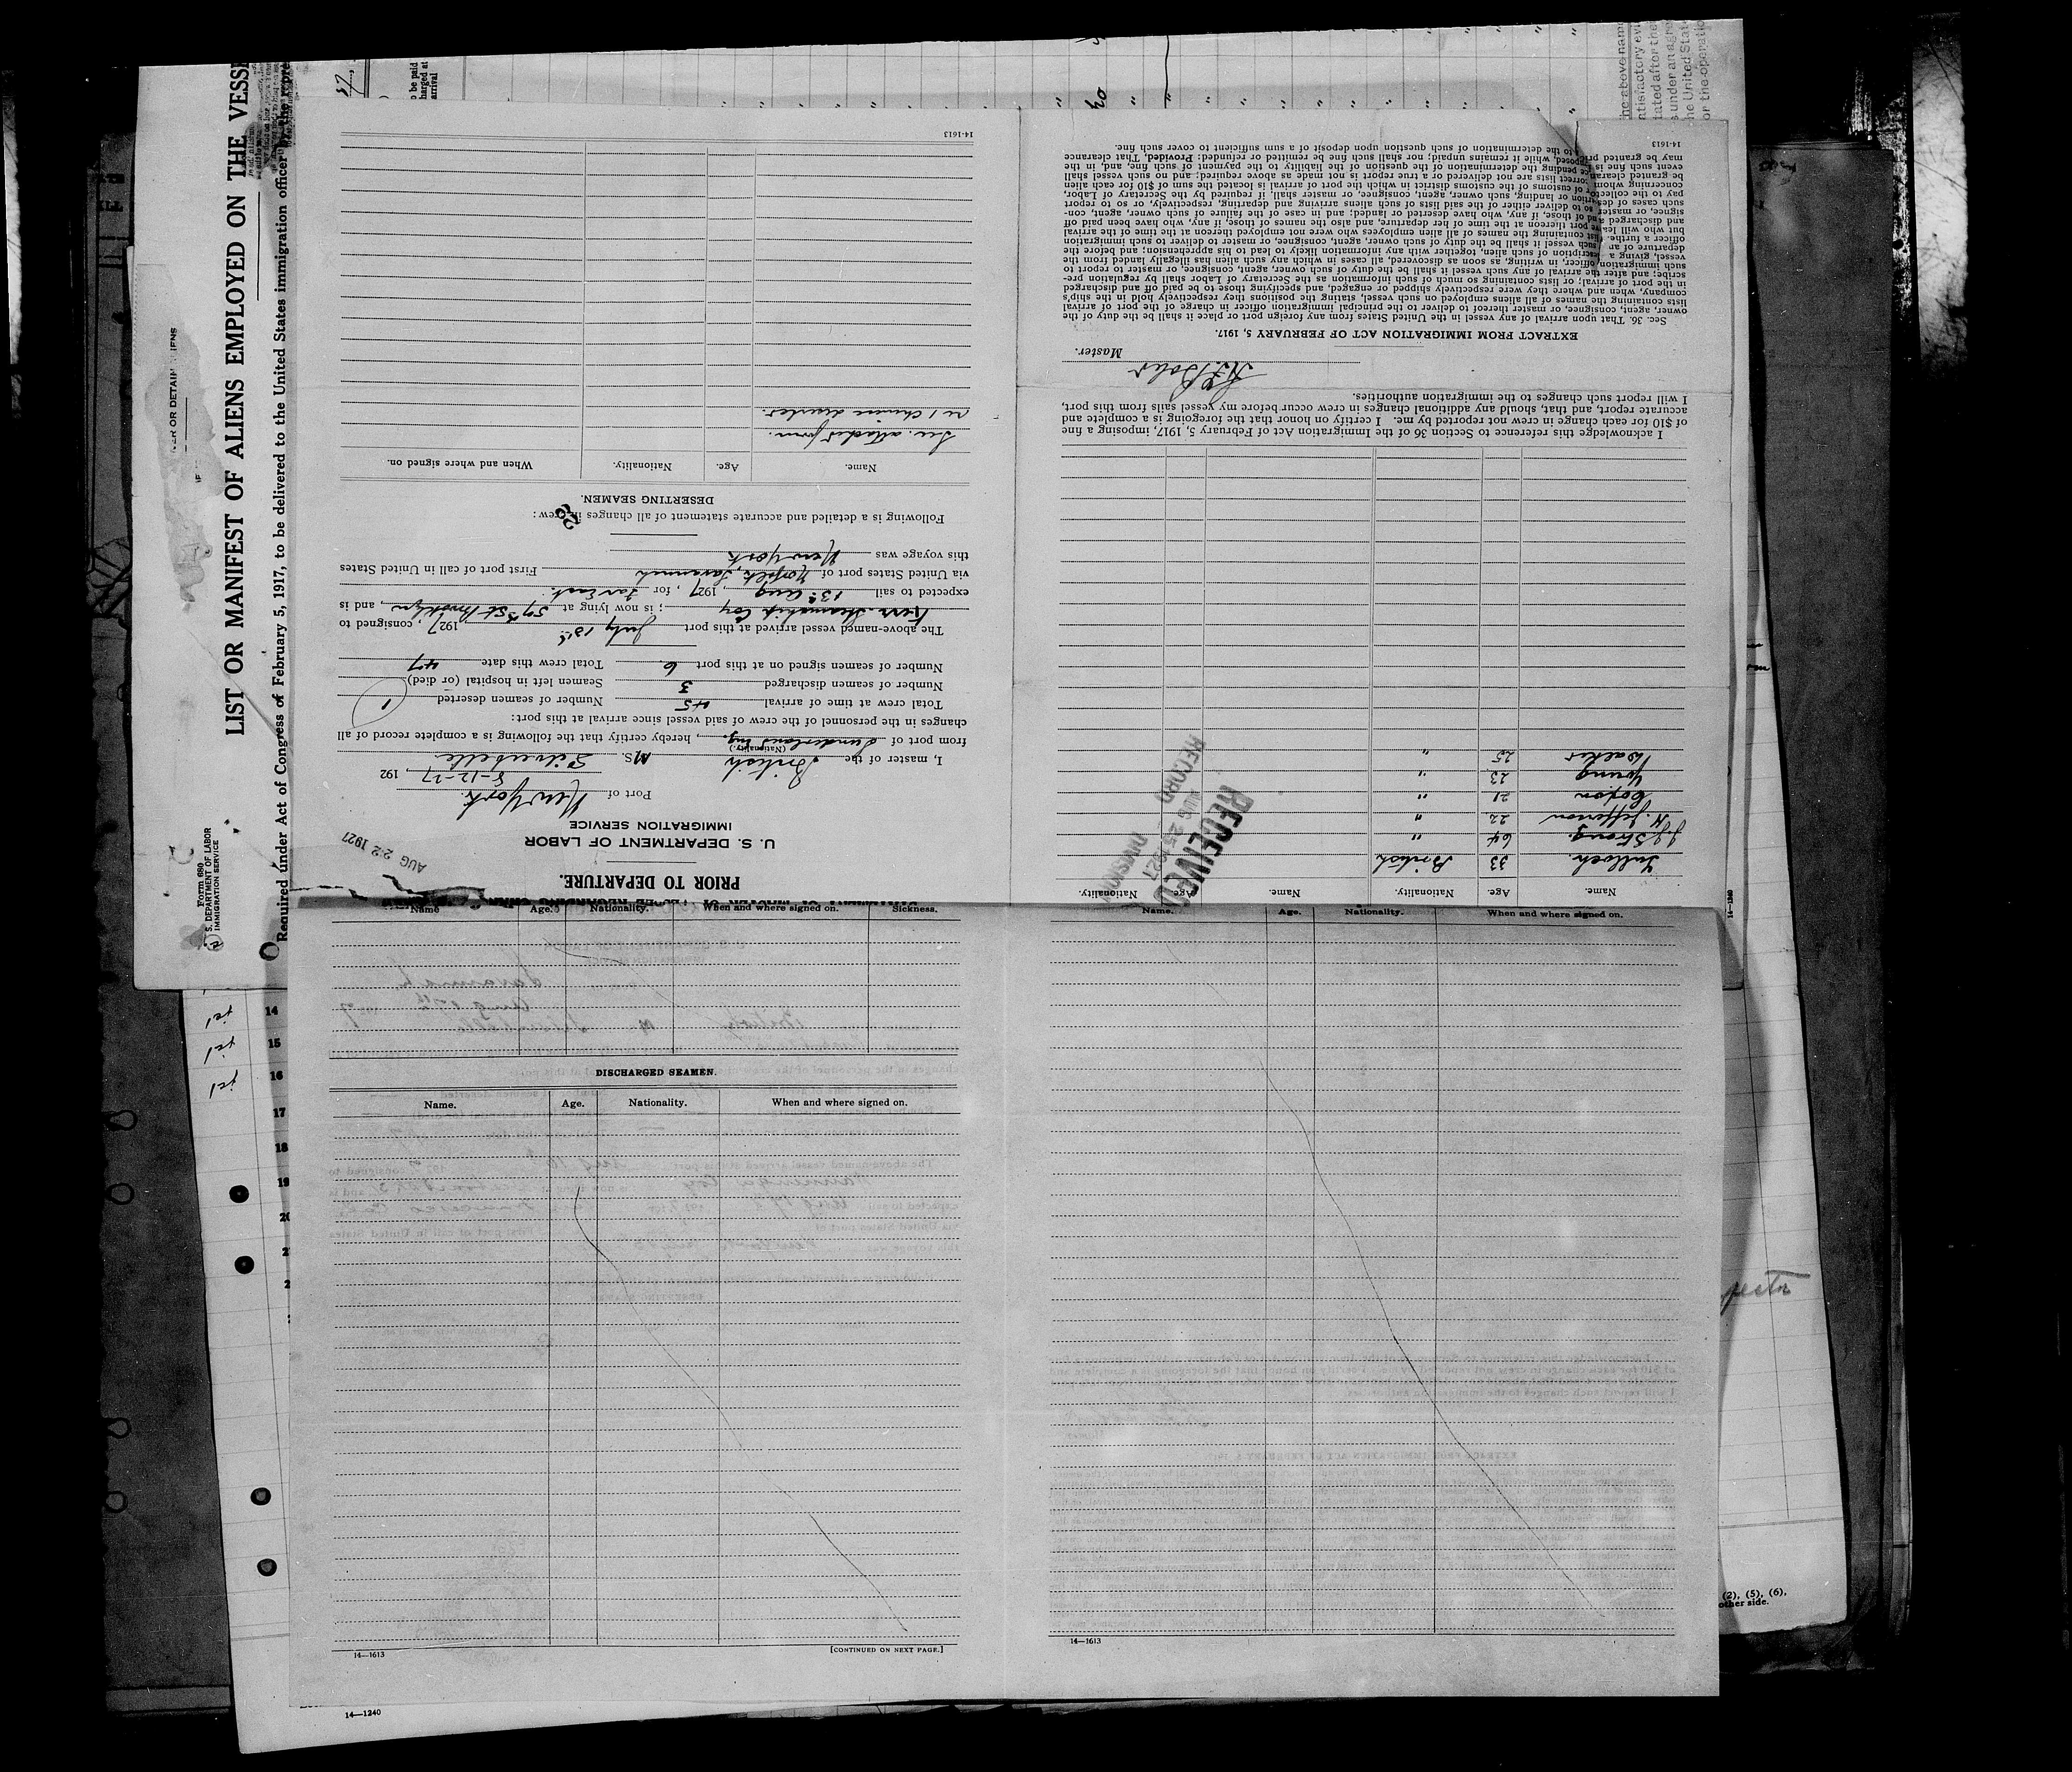 LIST OR MANIFEST OF ALIENS EMPLOYED ON THE VESSE
Required under Act of Congress of February 5, 1917, to be delivered to the United States immigration officer by the repre
Form 680
U. S. DEPARTMENT OF LABOR
IMMIGRATION SERVICE
PRIOR TO DEPARTURE.
U. S. DEPARTMENT OF LABOR
IMMIGRATION SERVICE
AUG 22 1927
Port of New York.
8-12-27, 192
I, master of the British M S. Silverbelle
(Nationality.)
from port of Sunderland Eng., hereby certify that the following is a complete record of all
changes in the personnel of the crew of said vessel since arrival at this port:
Total crew at time of arrival 45 Number of seamen deserted 1
Number of seamen discharged 3 Seamen left in hospital (or died)
Number of seamen signed on at this port 6 Total crew this date 47
The above-named vessel arrived at this port July 1927, consigned to
Kerr Steamship Coy; is now lying at 59th St Brooklyn, and is
expected to sail 13th Aug, 1927, for Far East.
via United States port of Norfolk, Savannah First port of call in United States
this voyage was New York
Following is a detailed and accurate statement of all changes in crew:
DESERTING SEAMEN.
Name. Age. Nationality. When and where signed on.
See attached form.
re 1 chinese deserter.
14-1613
Name. Age. Nationality. Name. Age. Nationality.
Tulloch. 33 British
J. J. Strong. 64 "
H. Jefferson 22 "
Coxon 21 "
Young 23 "
Walker 25 "
RECEIVED
AUG 25 1927
RECORD DIVISION
I acknowledge this reference to Section 36 of the Immigration Act of February 5, 1917, imposing a fine
of $10 for each change in crew not reported by me. I certify on honor that the foregoing is a complete and
accurate report, and that, should any additional changes in crew occur before my vessel sails from this port,
I will report such changes to the immigration authorities.
Master.
EXTRACT FROM IMMIGRATION ACT OF FEBRUARY 5, 1917.
Sec. 36. That upon arrival of any vessel in the United States from any foreign port or place it shall be the duty of the
owner, agent, consignee, or master thereof to deliver to the principal immigration officer in charge of the port of arrival
lists containing the names of all aliens employed on such vessel, stating the positions they respectively hold in the ship's
company, when and where they were respectively shipped or engaged, and specifying those to be paid off and discharged
in the port of arrival; or lists containing so much of such information as the Secretary of Labor shall by regulation pre-
scribe; and after the arrival of any such vessel it shall be the duty of such owner, agent, consignee, or master to report to
such immigration officer, in writing, as soon as discovered, all cases in which any such alien has illegally landed from the
vessel, giving a description of such alien, together with any information likely to lead to his apprehension; and before the
departure of an such vessel it shall be the duty of such owner, agent, consignee, or master to deliver to such immigration
officer a furthe list containing the names of all alien employees who were not employed thereon at the time of the arrival
but who will leave port thereon at the time of her departure, and also the names of those, if any, who have been paid off
and discharged and of those, if any, who have deserted or landed; and in case of the failure of such owner, agent, con-
signee, or master so to deliver either of the said lists of such aliens arriving and departing, respectively, or so to report
such cases of desertion or landing, such owner, agent, consignee, or master shall, if required by the Secretary of Labor,
pay to the collector of customs of the customs district in which the port of arrival is located the sum of $10 for each alien
concerning whom correct lists are not delivered or a true report is not made as above required; and no such vessel shall
be granted clearance pending the determination of the question of the liability to the payment of such fine, and, in the
event such fine is imposed, while it remains unpaid; nor shall such fine be remitted or refunded: Provided, That clearance
may be granted pr to the determination of such question upon deposit of a sum sufficient to cover such fine.
14-1613
Name Age. Nationality. When and where signed on. Sickness.
DISCHARGED SEAMEN.
Name. Age. Nationality. When and where signed on.
14—1613
[CONTINUED ON NEXT PAGE.]
Name. Age. Nationality. When and where signed on.
14—1613
14
15
16
17
18
19
14—1240
14—1240
(2), (5), (6),
other side.